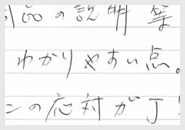 品の説明等
わかりやすい点。
の応対が丁